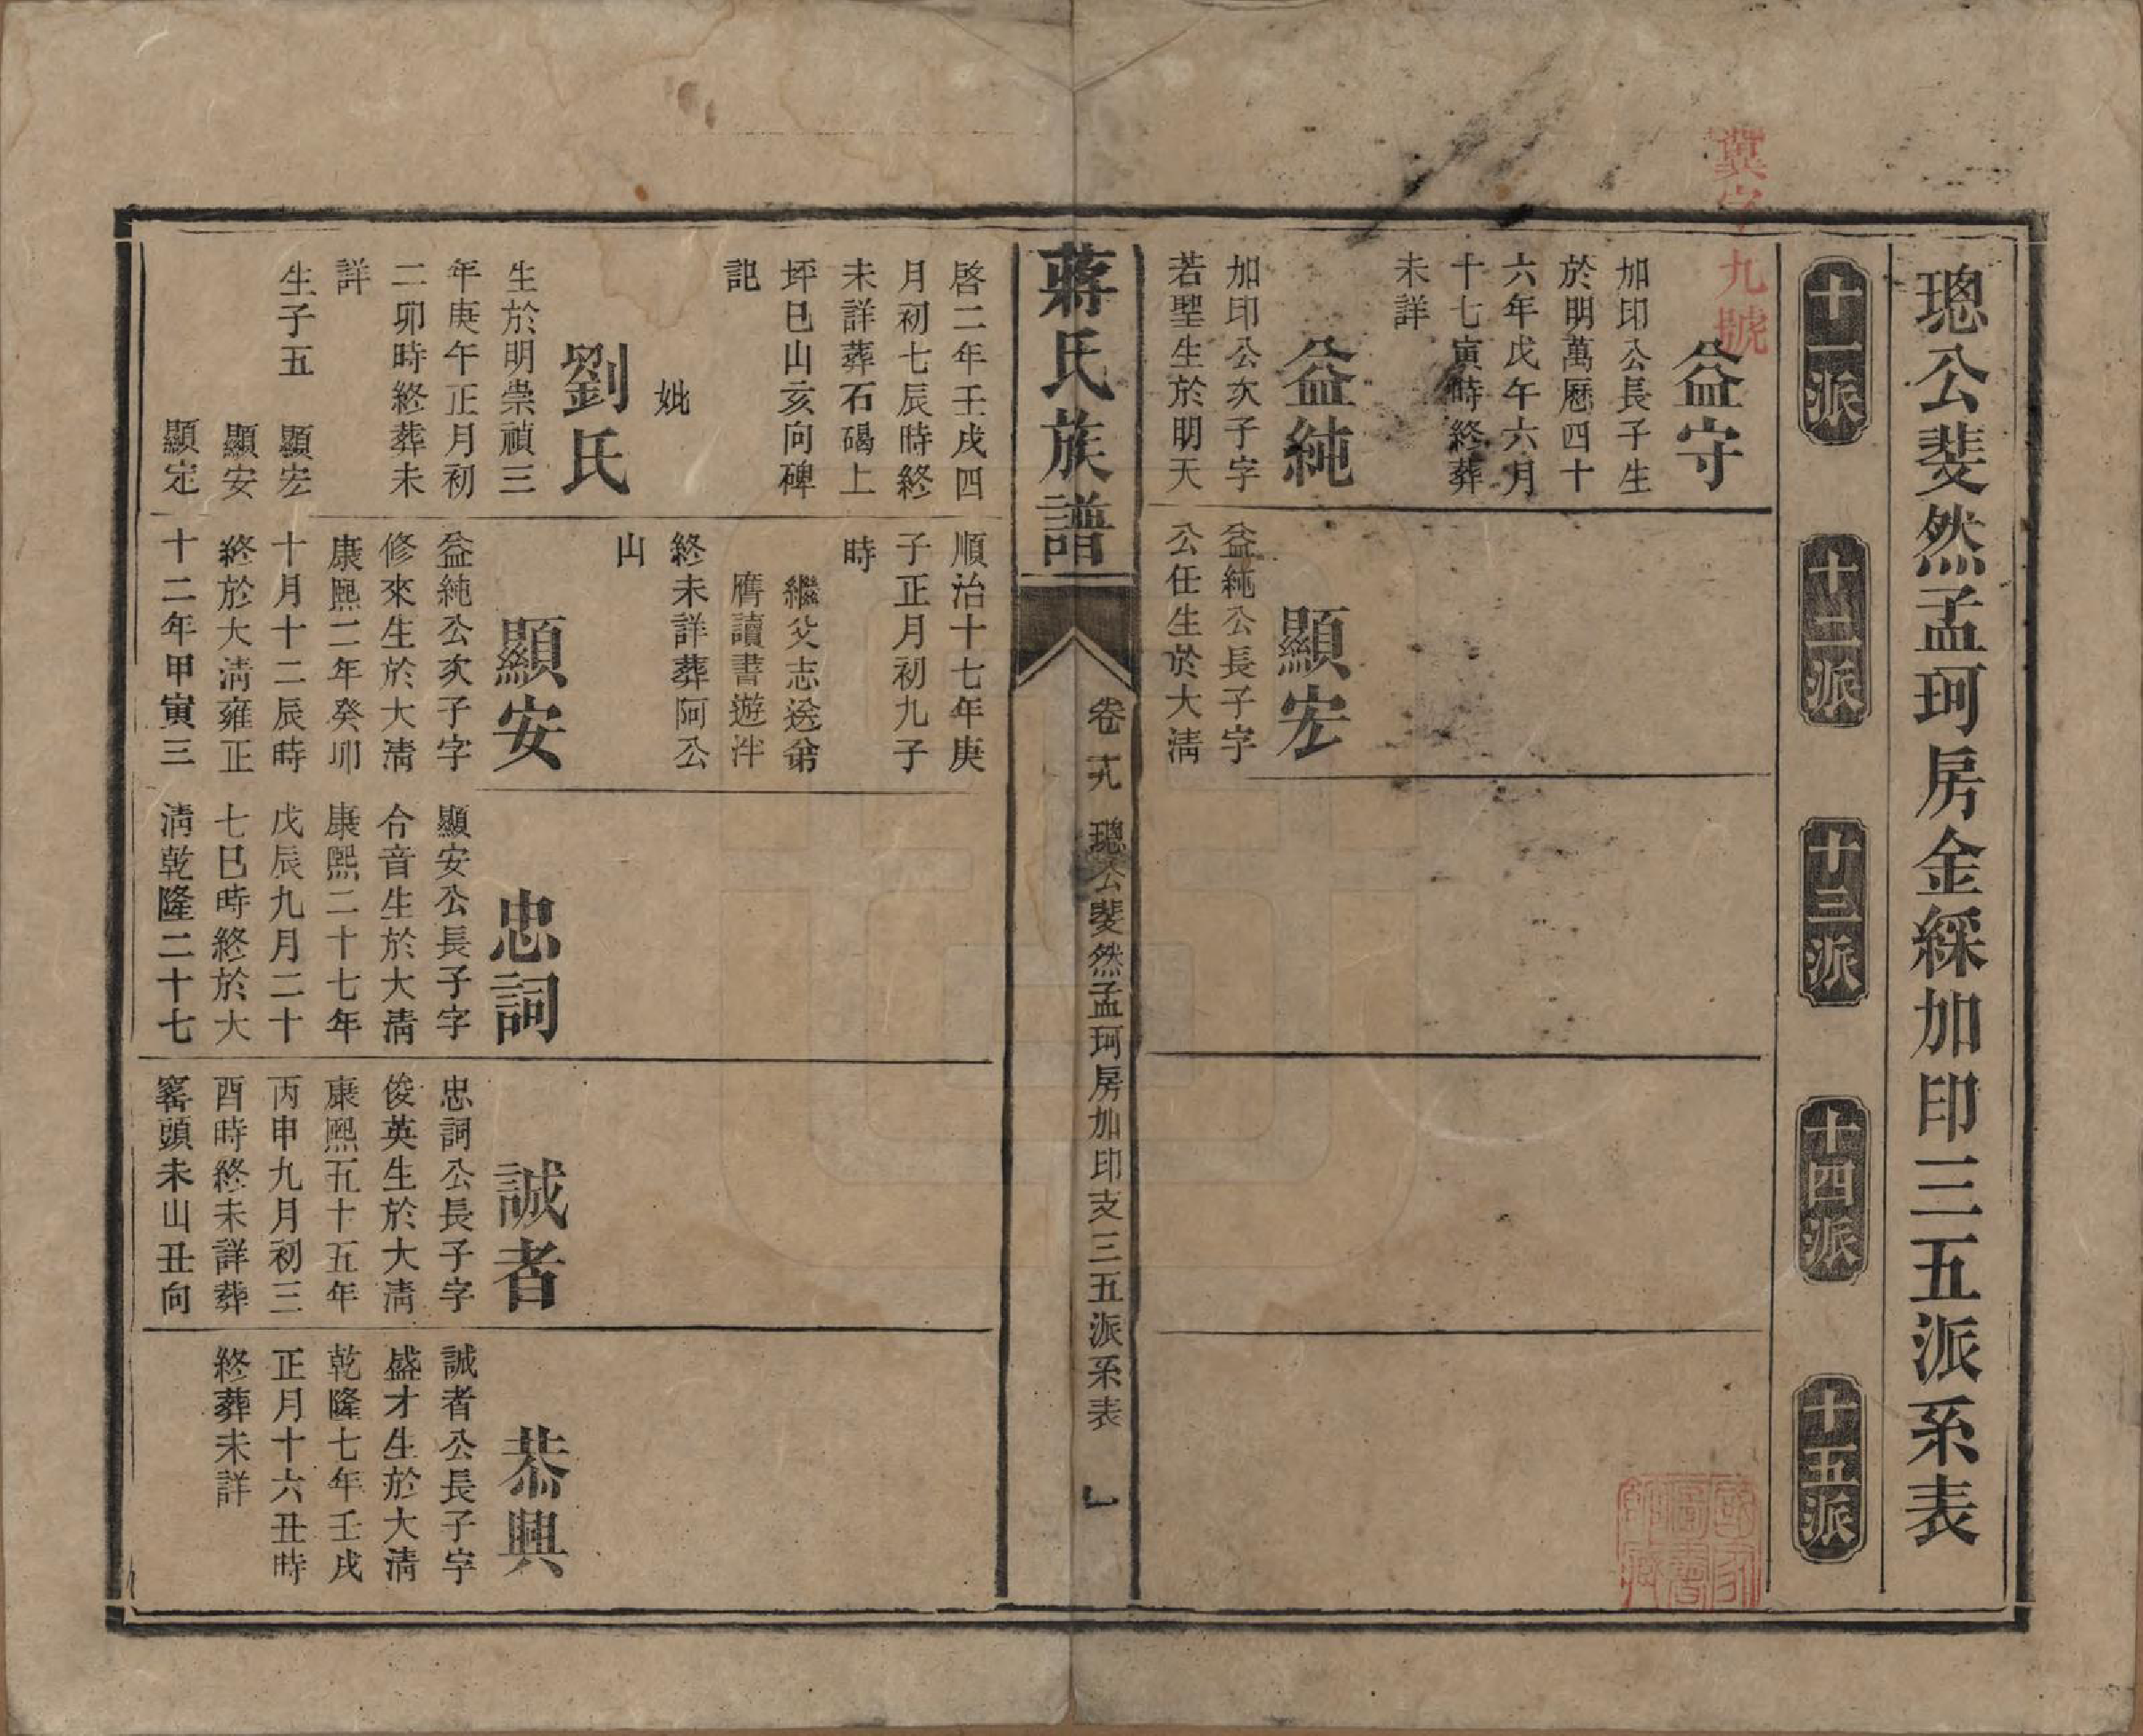 璁公斐然孟珂房金綵加印三五派系表
十一派
十二派
十三派
十四派
十五派
冀字九號
益守
加印公長子生
於明萬曆四十
六年戊午六月
十七寅時終葬
未詳
益純
加印公次子字
若聖生於明天
顯宏
益純公長子字
公任生於大清
蔣氏族譜
卷十九
璁公斐然孟珂房加印支三五派系表
一
啓二年壬戌四
月初七辰時終
未詳葬石碣上
坪巳山亥向碑
記
妣
劉氏
生於明崇禎三
年庚午正月初
二卯時終葬未
詳
生子五
顯宏
顯安
顯定
順治十七年庚
子正月初九子
時
繼父志送弟
膺讀書遊泮
終未詳葬阿公
山
顯安
益純公次子字
修來生於大清
康熙二年癸卯
十月十二辰時
終於大清雍正
十二年甲寅三
忠詞
顯安公長子字
合音生於大清
康熙二十七年
戊辰九月二十
七巳時終於大
清乾隆二十七
誠者
忠詞公長子字
俊英生於大清
康熙五十五年
丙申九月初三
酉時終未詳葬
窰頭未山丑向
恭興
誠者公長子字
盛才生於大清
乾隆七年壬戌
正月十六丑時
終葬未詳
國家圖書館藏